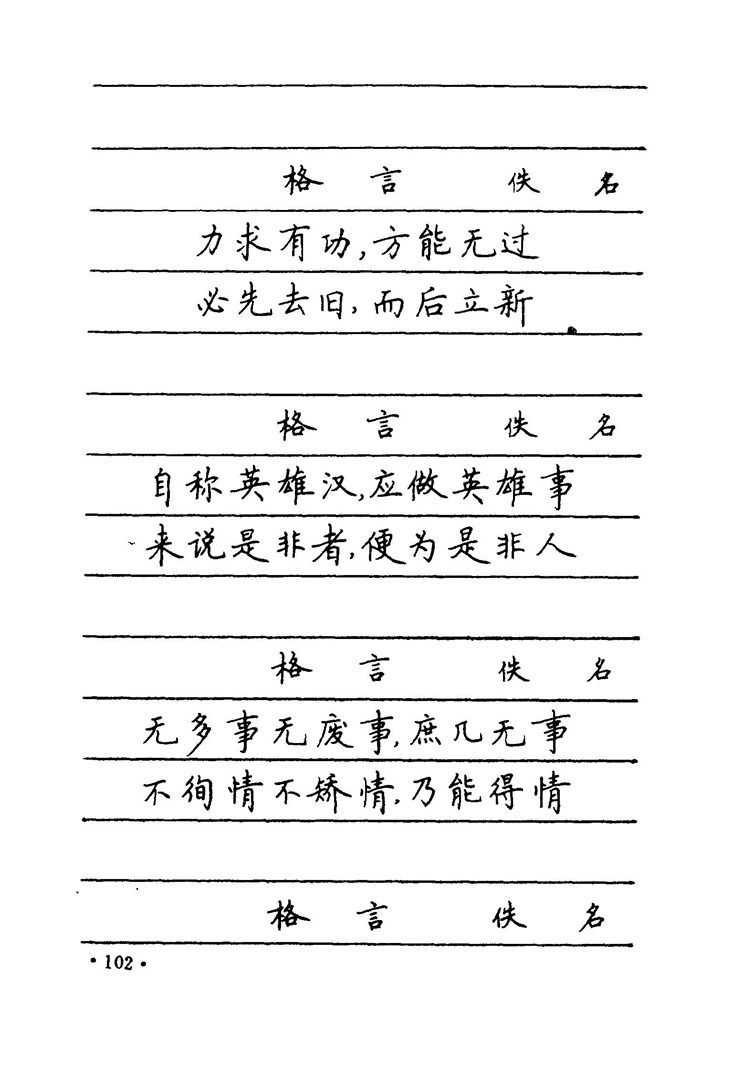 格言 佚名
力求有功,方能无过
必先去旧,而后立新
格言 佚名
自称英雄汉,应做英雄事
来说是非者,便为是非人
格言 佚名
无多事无废事,庶几无事
不徇情不矫情,乃能得情
格言 佚名
·102·